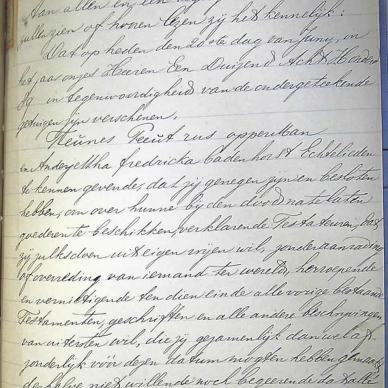 Aan allen in een
zullen zien of hooren lezen zij het kennelijk:
Dat op heden den 20ste dag van Juny, in
het jaar onzes Heeren Een Duizend Acht Honderd
in tegenwoordigheid van de ondergeteekende
getuigen zyn verschenen.
Theunes Peut rus opperman
en Andryettha fredricka Badenhorst Echtelieden
te kennen gevende, dat zij genegen zyn en besloten
hebben, om over hunne bij den dood na te laten
goederen te beschikken, verklarende Testateuren, dat
zij zulks doen uit eigen vrijen wil, zonder aanrading
of overreding van iemand ter wereld, herroepende
en vernietigende ten dien einde alle vorige bestaande
Testamenten, geschriften en alle andere beschikkingen
van uitersten wil, die zij gezamenlijk dan wel af-
zonderlijk vóór dezen datum mogten hebben gemaakt
derhalve niet willende noch begeerende dat alle